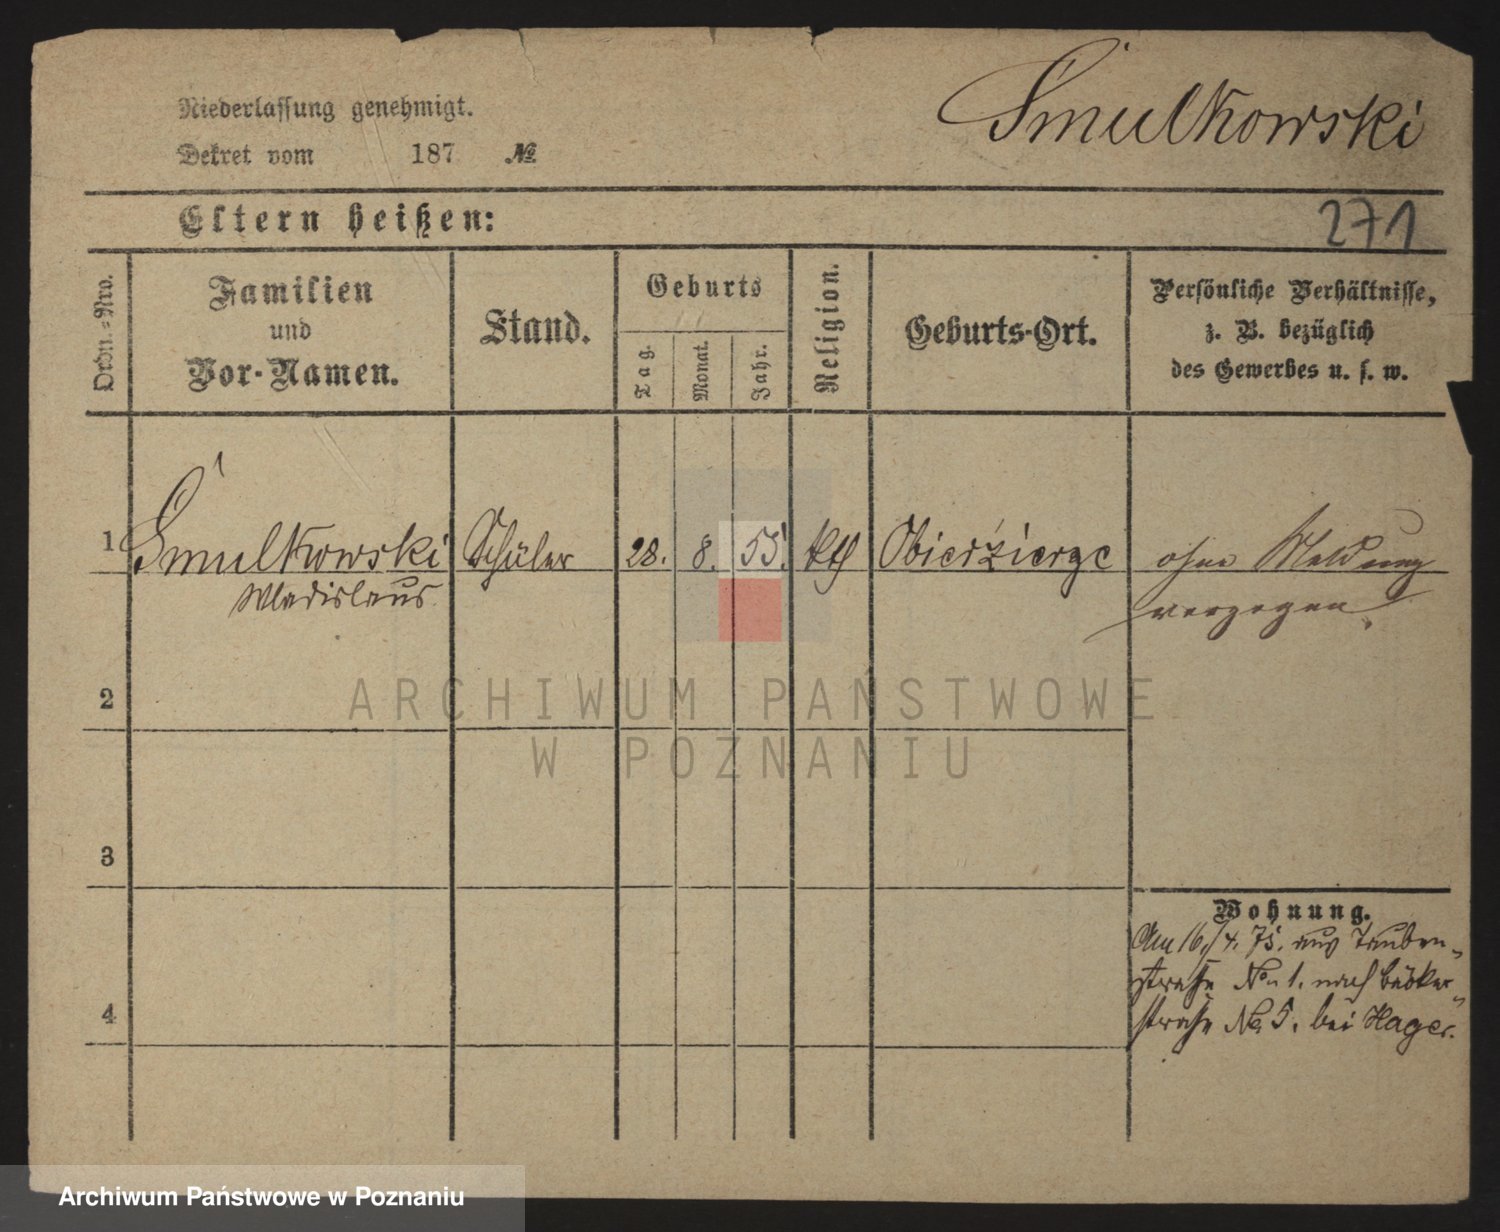 Niederlassung genehmigt.
Śmulkowski
Dekret vom 187 №
Eltern heißen:
271
Ordn.-Nro.
Familien
und
Vor-Namen.
Stand.
Geburts
Tag.
Monat.
Jahr.
Religion.
Geburts-Ort.
Persönliche Verhältnisse,
z. B. bezüglich
des Gewerbes u. s. w.
1 Śmulkowski Schüler 28. 8. 55. kth Obierzierze ohne Meldung
Wladislaus verzogen.
2
ARCHIWUM PAŃSTWOWE
W POZNANIU
3
Wohnung.
Am 16/4. 75. aus Tauben-
straße No 1. nach Bäcker-
straße No 5. bei Hager.
4
Archiwum Państwowe w Poznaniu